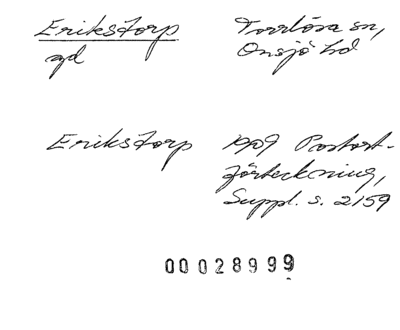 Erikstorp
gd
Torrlösa sn,
Onsjö hd
Erikstorp
1909 Postort-
förteckning,
Suppl. s. 2159
00028999